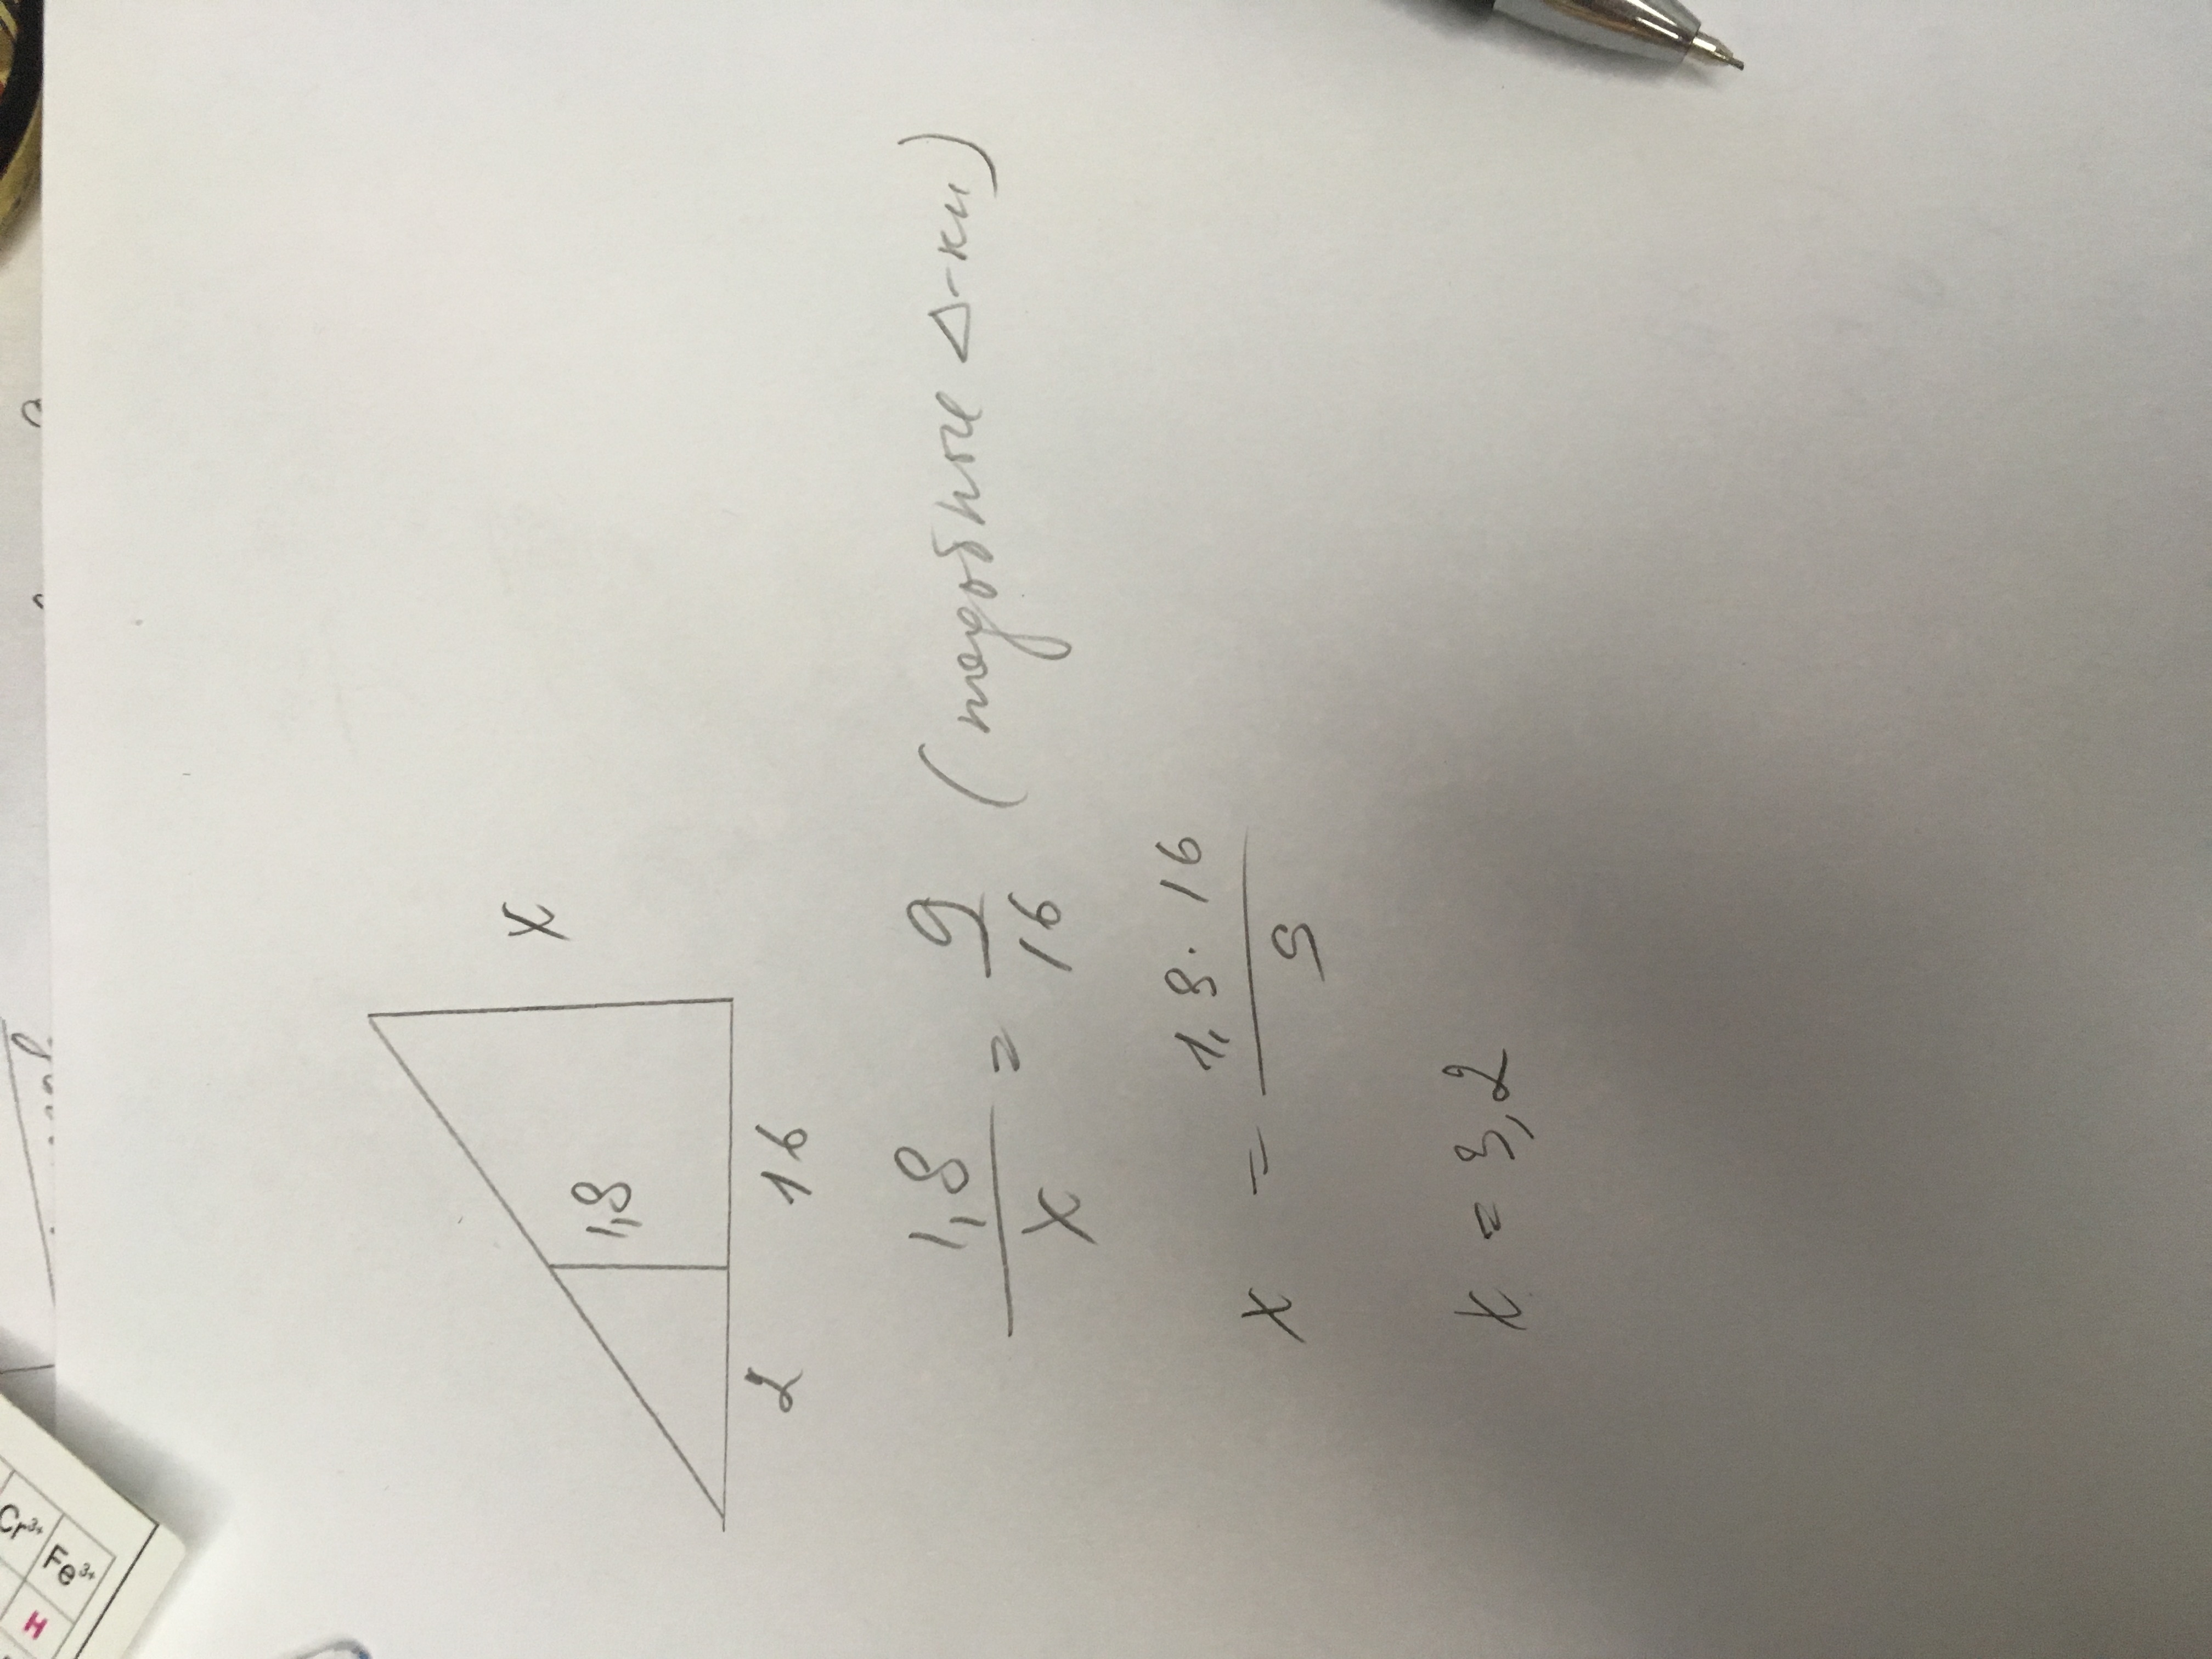 x
1,8
2 16
1,8/x = 9/16 (подобные Δ-ки)
x = 1,8·16/9
x = 3,2
Cr³⁺
Fe³⁺
H